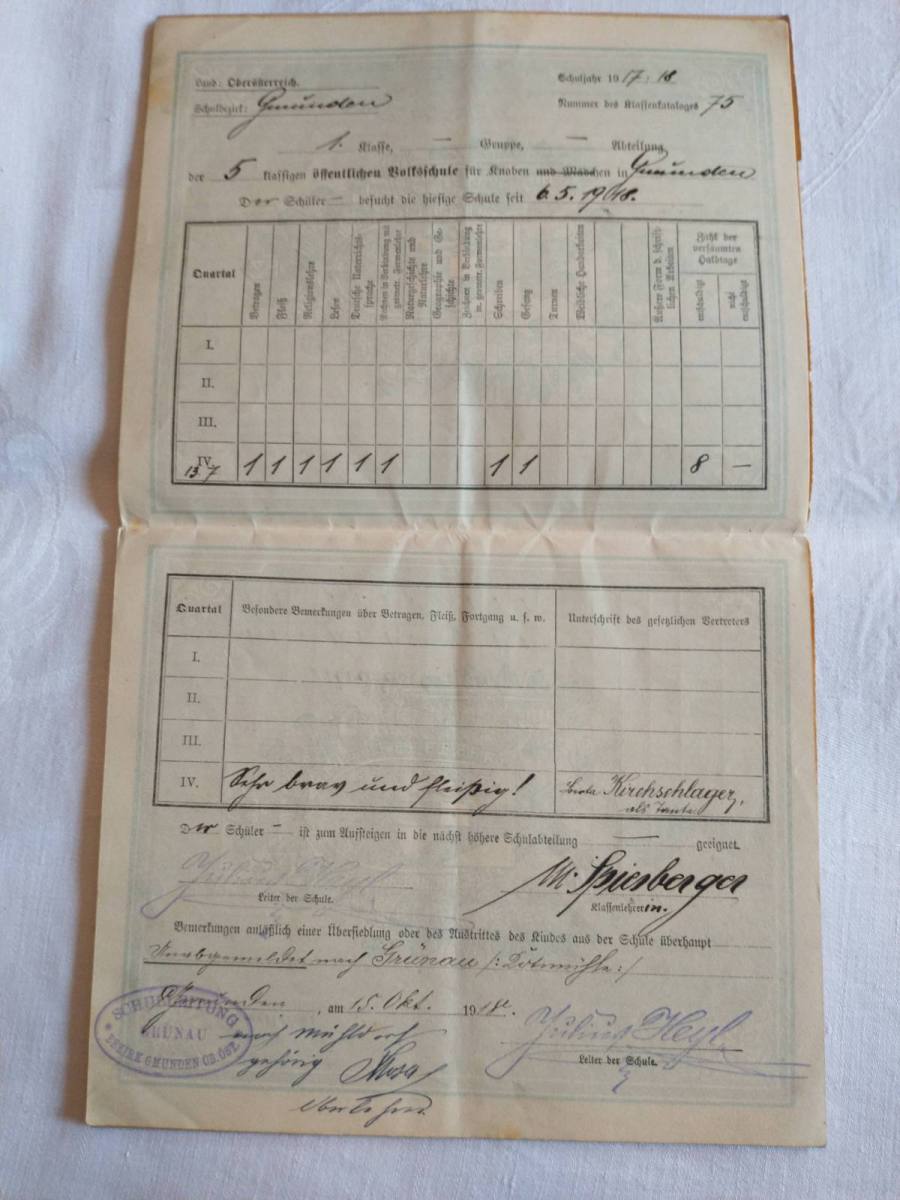 Land: Oberösterreich. Schuljahr 1917:18
Schulbezirk: Gmunden Nummer des Klassenkataloges 75
1. Klasse, — Gruppe, — Abteilung
der 5 klassigen öffentlichen Volksschule für Knaben und Mädchen in Gmunden
Der Schüler — besucht die hiesige Schule seit 6.5.1918.
Quartal
Betragen
Fleiß
Religionslehre
Lesen
Deutsche Unterrichtssprache
Rechnen in Verbindung mit geometr. Formenlehre
Naturgeschichte und Naturlehre
Geographie und Geschichte
Zeichnen in Verbindung m. geometr. Formenlehre
Schreiben
Gesang
Turnen
Weibliche Handarbeiten
Äußere Form d. schriftlichen Arbeiten
Zahl der versäumten Halbtage
entschuldigt
nicht entschuldigt
I.
II.
III.
IV. 1 1 1 1 1 1 1 1 8 —
13.7
Quartal Besondere Bemerkungen über Betragen, Fleiß, Fortgang u. s. w. Unterschrift des gesetzlichen Vertreters
I.
II.
III.
IV. Sehr brav und fleißig! Kirchschlager,
als Tante
Der Schüler — ist zum Aufsteigen in die nächst höhere Schulabteilung — geeignet.
Julius Heyl M. Spiesberger
Leiter der Schule. Klassenlehrerin.
Bemerkungen anläßlich einer Übersiedlung oder des Austrittes des Kindes aus der Schule überhaupt
nach Grünau
Gmunden, am 15. Okt. 1918.
SCHULLEITUNG
GRÜNAU
BEZIRK GMUNDEN OB. ÖST.
nach Mühldorf
gehörig
Julius Heyl
Leiter der Schule.